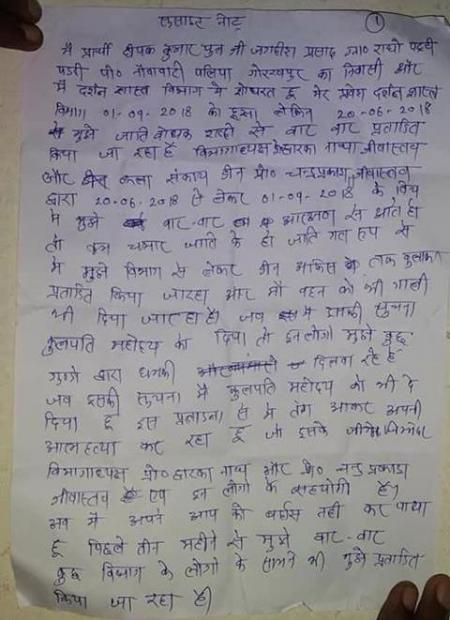 सुसाइट नोट
1
मै प्रार्थी दीपक कुमार पुत्र श्री जगदीश प्रसाद
पो० गोरखपुर का निवासी और
मै दर्शन शास्त्र विभाग मे शोधरत हू मेरा प्रवेश दर्शन शास्त्र
विभाग 01-09-2018 को हुआ लेकिन 20-06-2018
से मुझे जाति बोधक शब्दो से बार बार प्रताडित
किया जा रहा है विभागाध्यक्ष द्वारका नाथ श्रीवास्तव
और कला संकाय डीन प्रो० चन्द्रप्रकाश श्रीवास्तव
द्वारा 20-06-2018 से लेकर 01-09-2018 के बिच
मे मुझे बार-बार
तो तुम चमार जाति के हो जाति गत रूप से
मे मुझे विभाग से लेकर डीन आफिस तक बुलाकर
प्रताडित किया जारहा और माँ बहन की भी गाली
भी दिया जारहा है। जब इसकी सुचना
कुलपति महोदय को दिया तो इन लोगो मुझे कुछ
गुण्डो द्वारा धमकी दिलवा रहे है
जब इसकी सुचना मै कुलपति महोदय को भी दे
दिया हू इस प्रताडना से मै तंग आकर अपनी
आत्महत्या कर रहा हू जो इसके
विभागाध्यक्ष प्रो० द्वारका नाथ और प्रो० चन्द्र प्रकाश
श्रीवास्तव एवं इन लोगो के सहयोगी है।
अब मै अपने आप को बर्दास नही कर पाया
हू पिछले तीन महीने से मुझे बार-बार
कुछ विभाग के लोगो के सामने भी मुझे प्रताडित
किया जा रहा है।